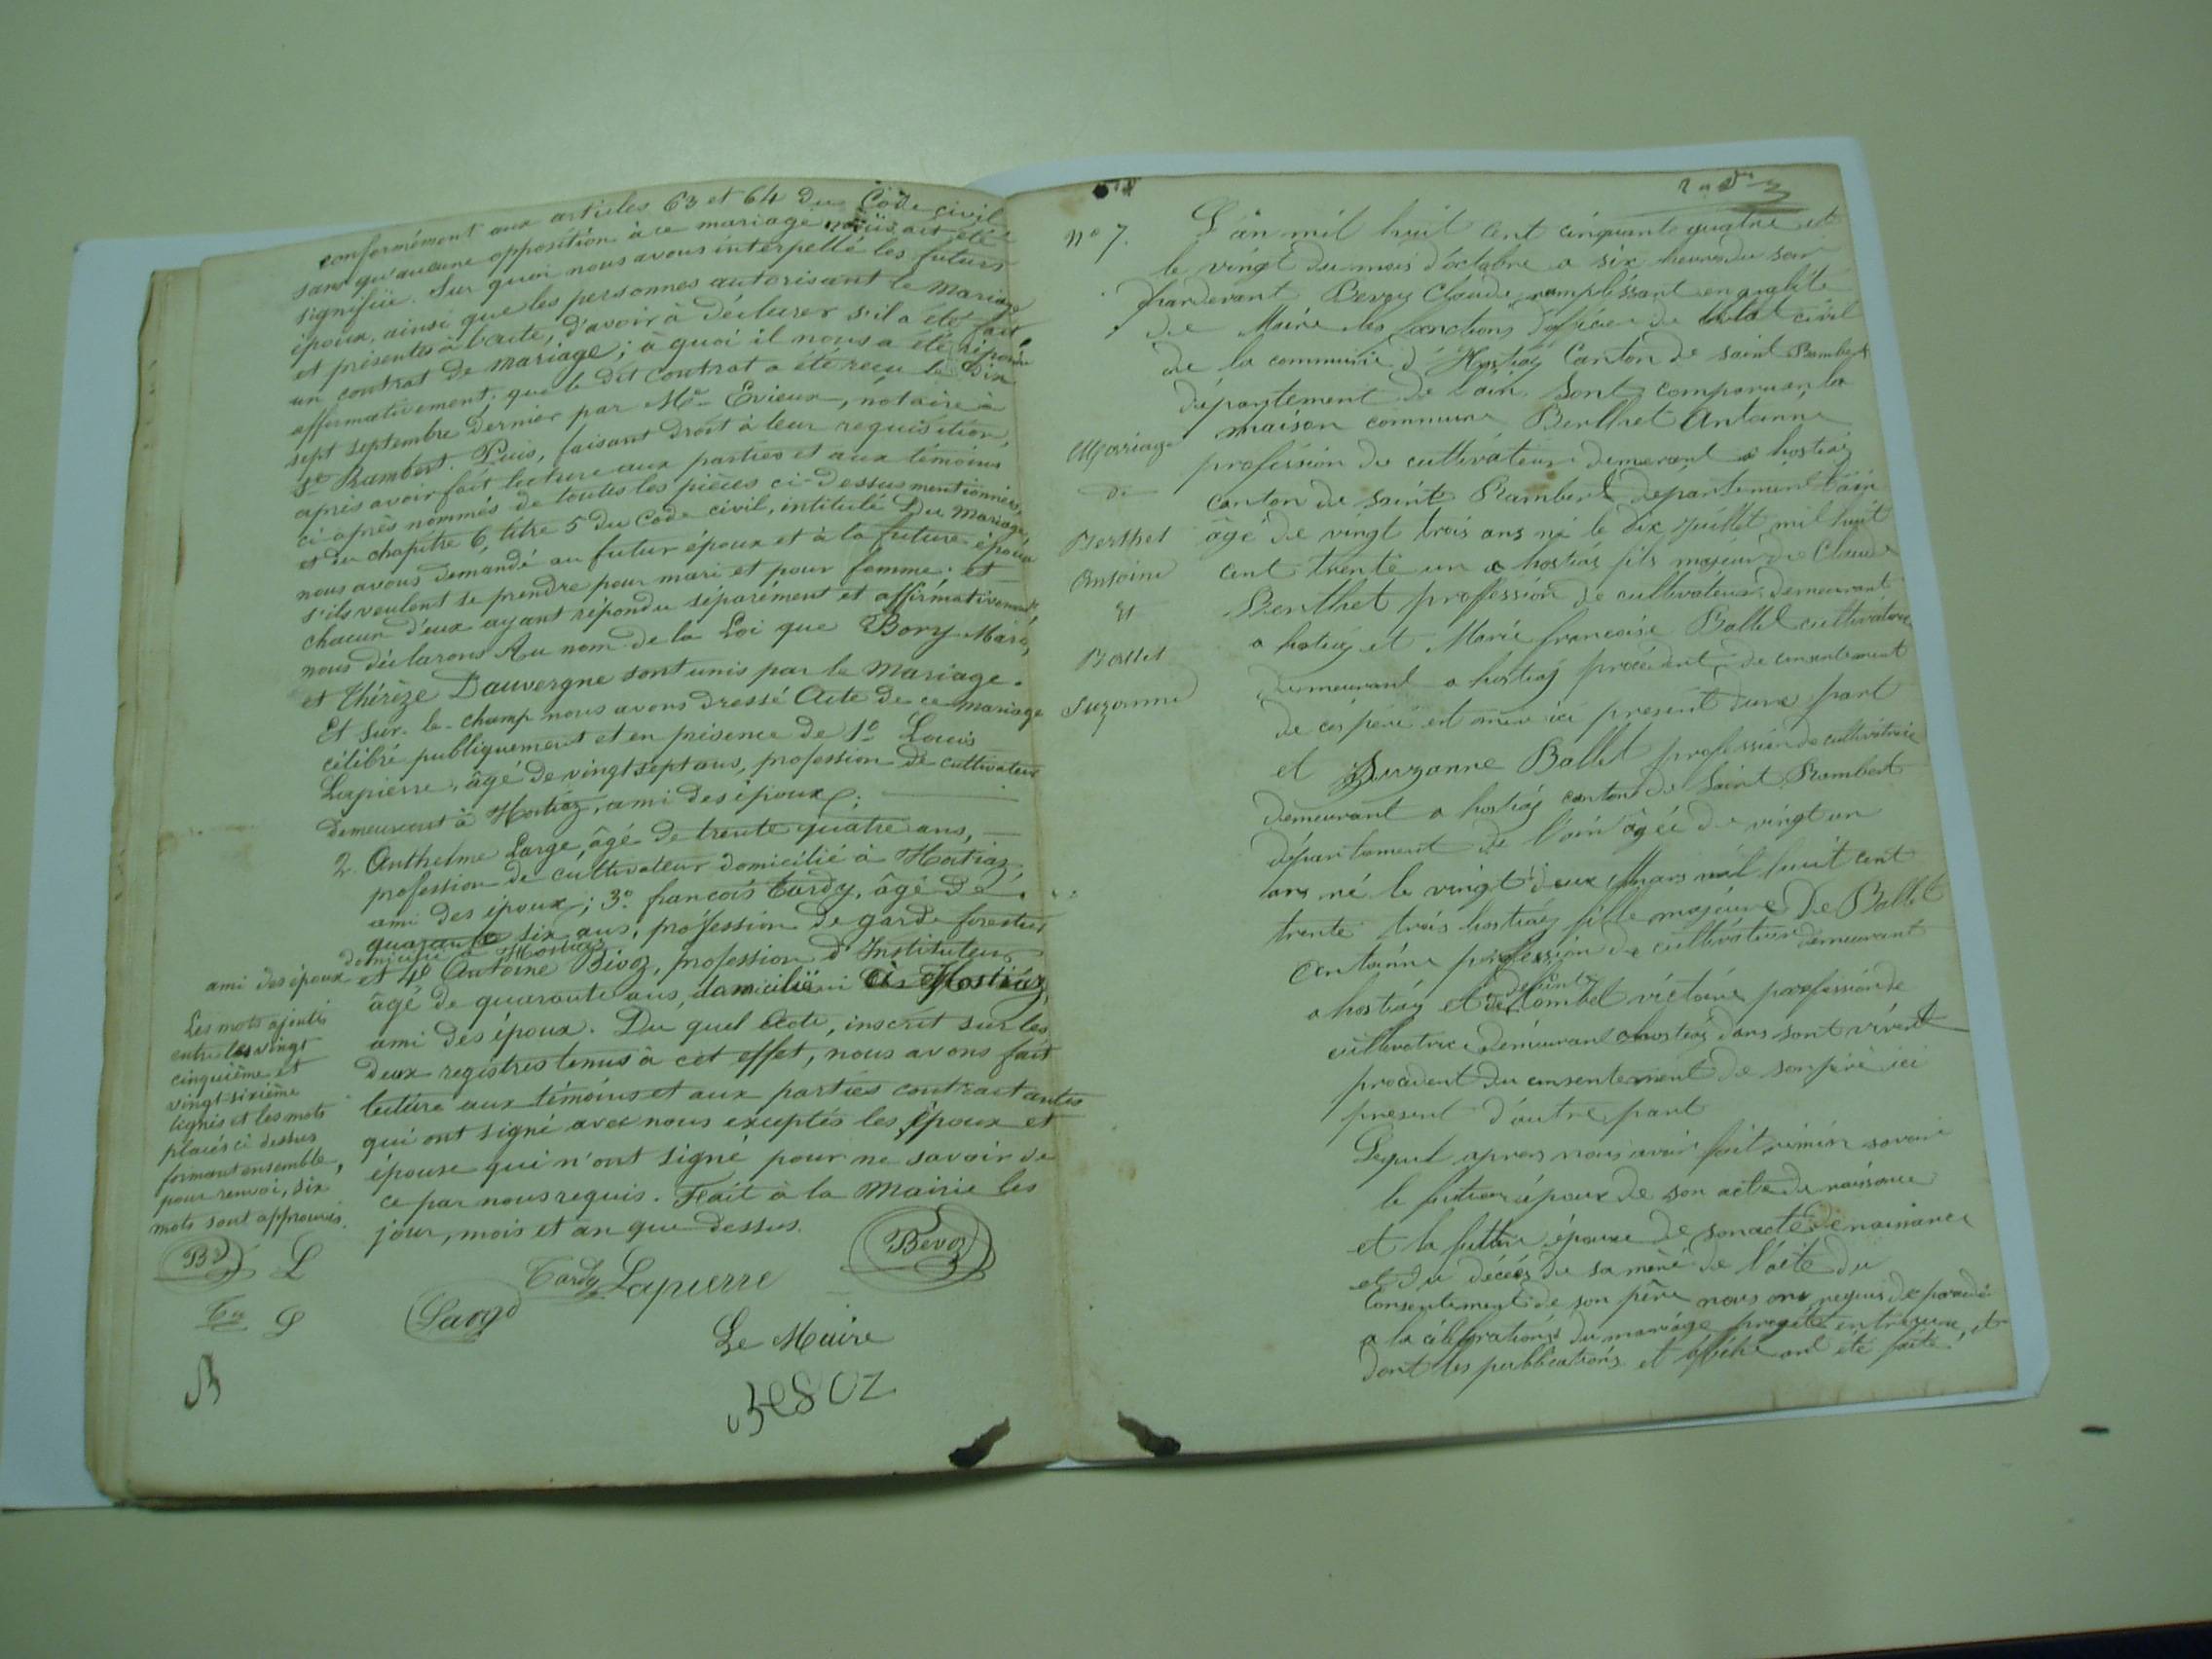 conformément aux articles 63 et 64 du Code civil
sans qu'aucune opposition à ce mariage nous ait été
signifiée. Sur quoi nous avons interpellé les futurs
époux, ainsi que les personnes autorisant le mariage
et présentes à l'acte, d'avoir à déclarer s'il a été fait
un contrat de mariage; à quoi il nous a été répondu
affirmativement; que le dit contrat a été reçu le dix
sept septembre dernier par Me Evieux, notaire à
St Rambert. Puis, faisant droit à leur requisition,
après avoir fait lecture aux parties et aux témoins
ci après nommés de toutes les pièces ci-dessus mentionnées,
et du chapitre 6, titre 5 du Code civil, intitulé Du Mariage,
nous avons demandé au futur époux et à la future épouse
s'ils veulent se prendre pour mari et pour femme; et
chacun d'eux ayant répondu séparément et affirmativement,
nous déclarons Au nom de la Loi que Bory Marc,
et Thérèze Dauvergne sont unis par le mariage.
Et sur-le-champ nous avons dressé Acte de ce mariage
célébré publiquement et en présence de 1o Louis
Lapierre, âgé de vingt sept ans, profession de cultivateur
demeurant à Hostiaz, ami des époux;
2. Anthelme Large, âgé de trente quatre ans,
profession de cultivateur domicilié à Hostiaz
ami des époux; 3o françois Tardy, âgé de
quarante six ans, profession de garde forestier
domicilié à Hostiaz
ami des époux et 4o Antoine Bevoz, profession d'Instituteur
âgé de quarante ans, domicilié à Hostiaz,
ami des époux. Du quel Acte, inscrit sur les
deux registres tenus à cet effet, nous avons fait
lecture aux témoins et aux parties contractantes
qui ont signé avec nous exceptés les époux et
épouse qui n'ont signé pour ne savoir de
ce par nous requis. Fait à la Mairie les
jour, mois et an que dessus.
Les mots ajoutés
entre les vingt
cinquième et
vingt-sixième
lignes et les mots
placés ci dessus
formant ensemble,
pour renvoi, six
mots sont approuvés.
Bz L
L
B
Tardy Lapierre Bevoz
Large
Le Maire
No 7.
Mariage
de
Berthet
Antoine
Et
Ballet
Suzanne
L'an mil huit cent cinquante quatre et
le vingt du mois d'octabre a six heures du soir
pardevant Claude remplissant en qualité
de Maire les fonctions d'oficier de l'état civil
de la commune d'Hostiaz Canton de saint Rambert
département de l'ain sont comparu en la
maison commune Berthet Antoine
profession de cultivateur demerant a hostiaz
canton de saint Rambert département l'ain
âgé de vingt trois ans né le dix juillet mil huit
cent trente un a hostiaz fils majeur de Claude
Berthet profession de cultivateur demeurant
a hostiaz et Marie francoise Ballet cultivatrice
demeurant a hostiaz procedent de consentement
de ces père et mère ici present d'une part
et Suzanne Ballet profession de cultivatrice
demeurant a hostiaz canton de Saint Rambert
département de l'ain âgée de vingt un
ans né le vingt deux Mars mil huit cent
trente trois hostiaz fille majeure De Ballet
Antoine profession de cultivateur demeurant
a hostiaz et de Combet victoire profession de
cultivatrice demeurant a hostiaz dans sont vivent
procedent du consentement de son père ici
present d'autre part
Lequel apres nous avoir fait
le futeur époux de son acte de naissance
et la future épouse de son acte de naisance
et du décès de sa mère de l'acte du
Consentement de son père nous ont requis de procedé
a la célébration du mariage progeté entre eux, et
dont les publications et ont été faite